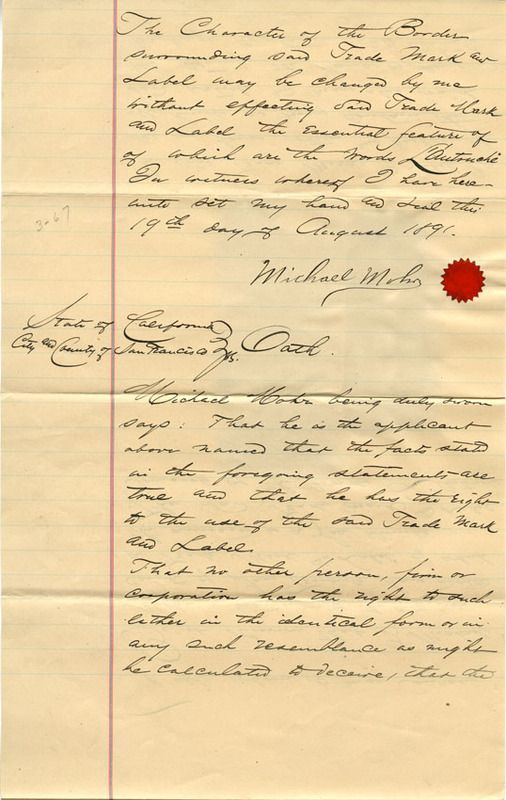 The Character of the Border
surrounding said Trade Mark and
Label may be changed by me
without effecting said Trade Mark
and Label the Essential feature of
of which are the words L'Autouché
In witness whereof I have here-
unto set my hand and seal this
19th day of August 1891.
3-67
Michael Mohr
State of California
City and County of San Francisco } ss. Oath.
Michael Mohr being duly sworn
says: That he is the applicant
above named that the facts stated
in the foregoing statements are
true and that he has the right
to the use of the said Trade Mark
and Label.
That no other person, firm or
corporation has the right to such
either in the identical form or in
any such resemblance as might
be calculated to deceive, that the